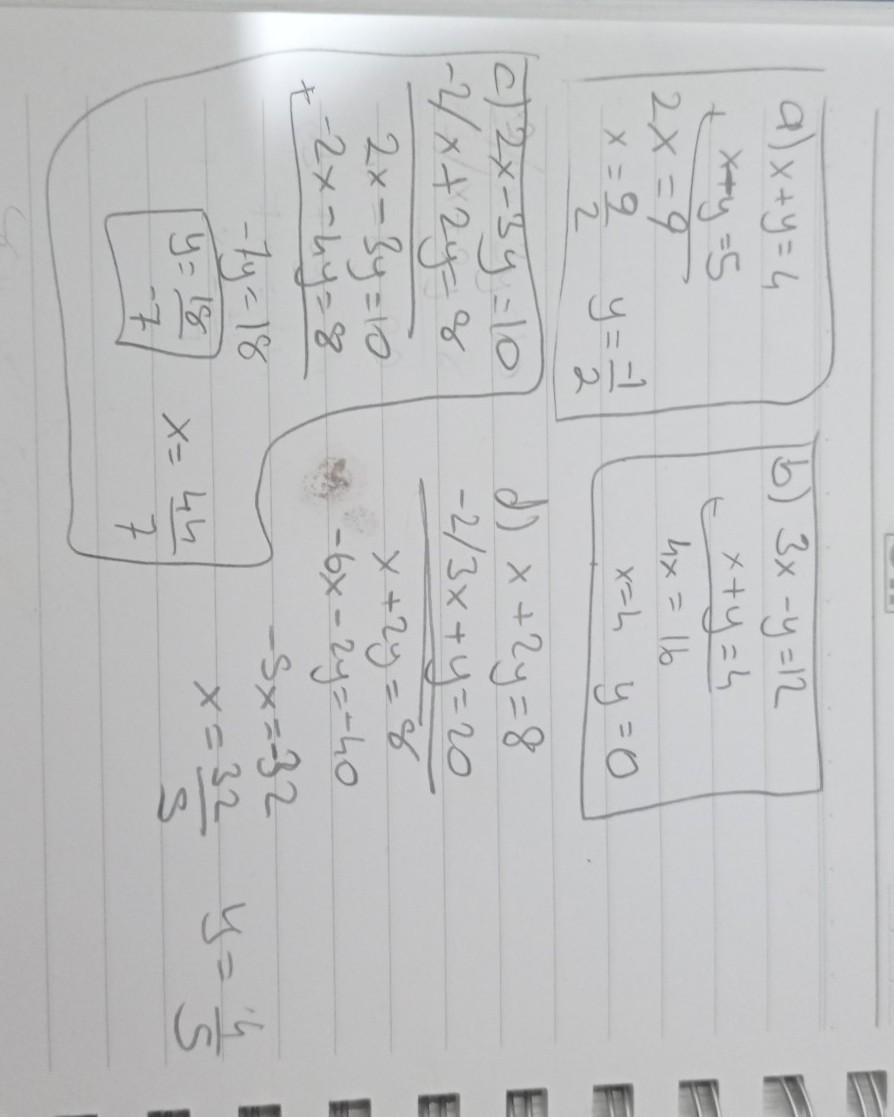 a) x+y=4
x+y=5
+
2x=9
x=9/2 y=-1/2
b) 3x-y=12
+
x+y=4
4x=16
x=4 y=0
c) 2x-3y=10
-2/x+2y=8
2x-3y=10
+
-2x-4y=8
-7y=18
y=18/-7 x=44/7
d) x+2y=8
-2/3x+y=20
x+2y=8
-6x-2y=-40
-5x=-32
x=32/5 y=4/5